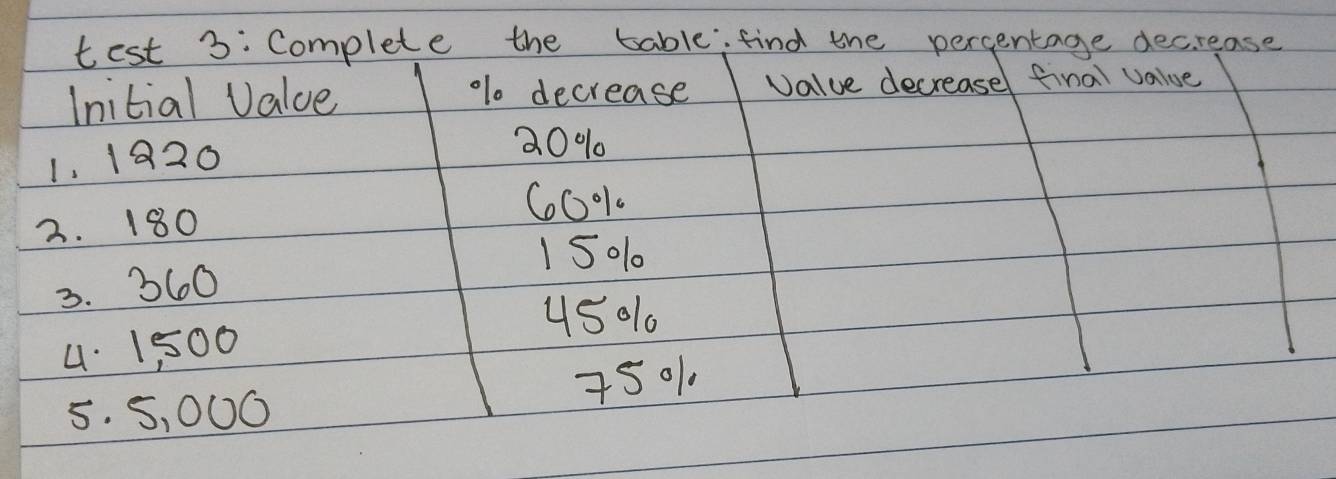 test 3: Complete the table: find the percentage decrease
Initial Value % decrease Value decrease final value
1. 1220 20%
2. 180 60%
3. 360 15%
4. 1,500 45%
5. 5,000 75%